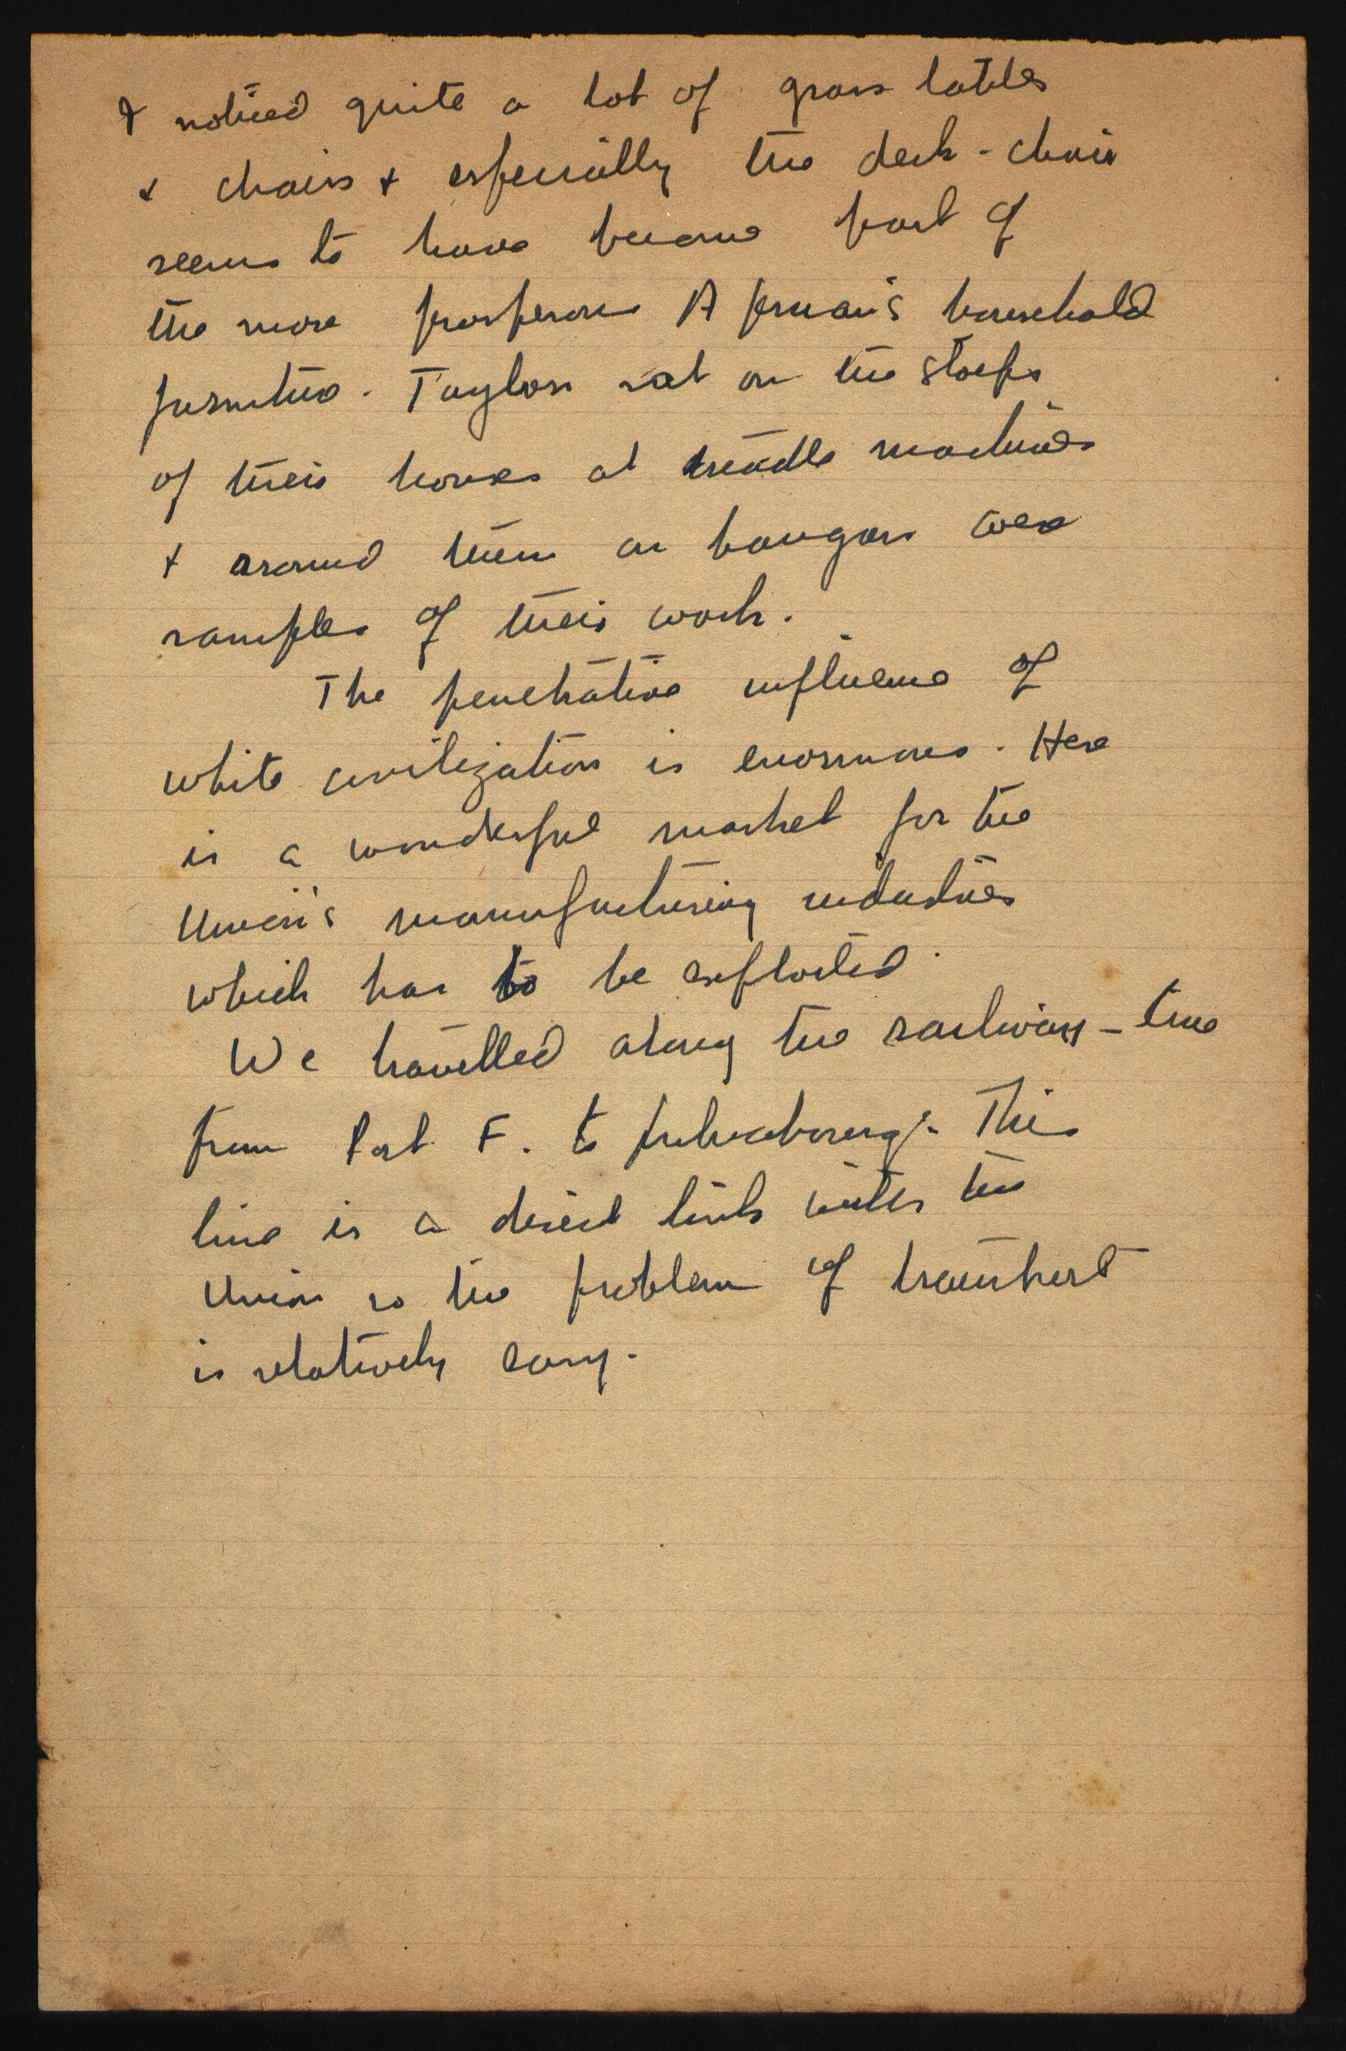 I noticed quite a lot of grass tables
& chairs & especially the deck-chair
seems to have become part of
the more prosperous household
furniture. Taylors sat on the stoeps
of their houses at treadle machines
& around them on hangers were
samples of their work.
The penetrative influence of
white civilization is enormous. Here
is a wonderful market for the
Union's manufacturing industries
which has to be exploited.
We travelled along the railway-line
from Port F. to This
line is a direct link with the
Union so the problem of
is relatively easy.